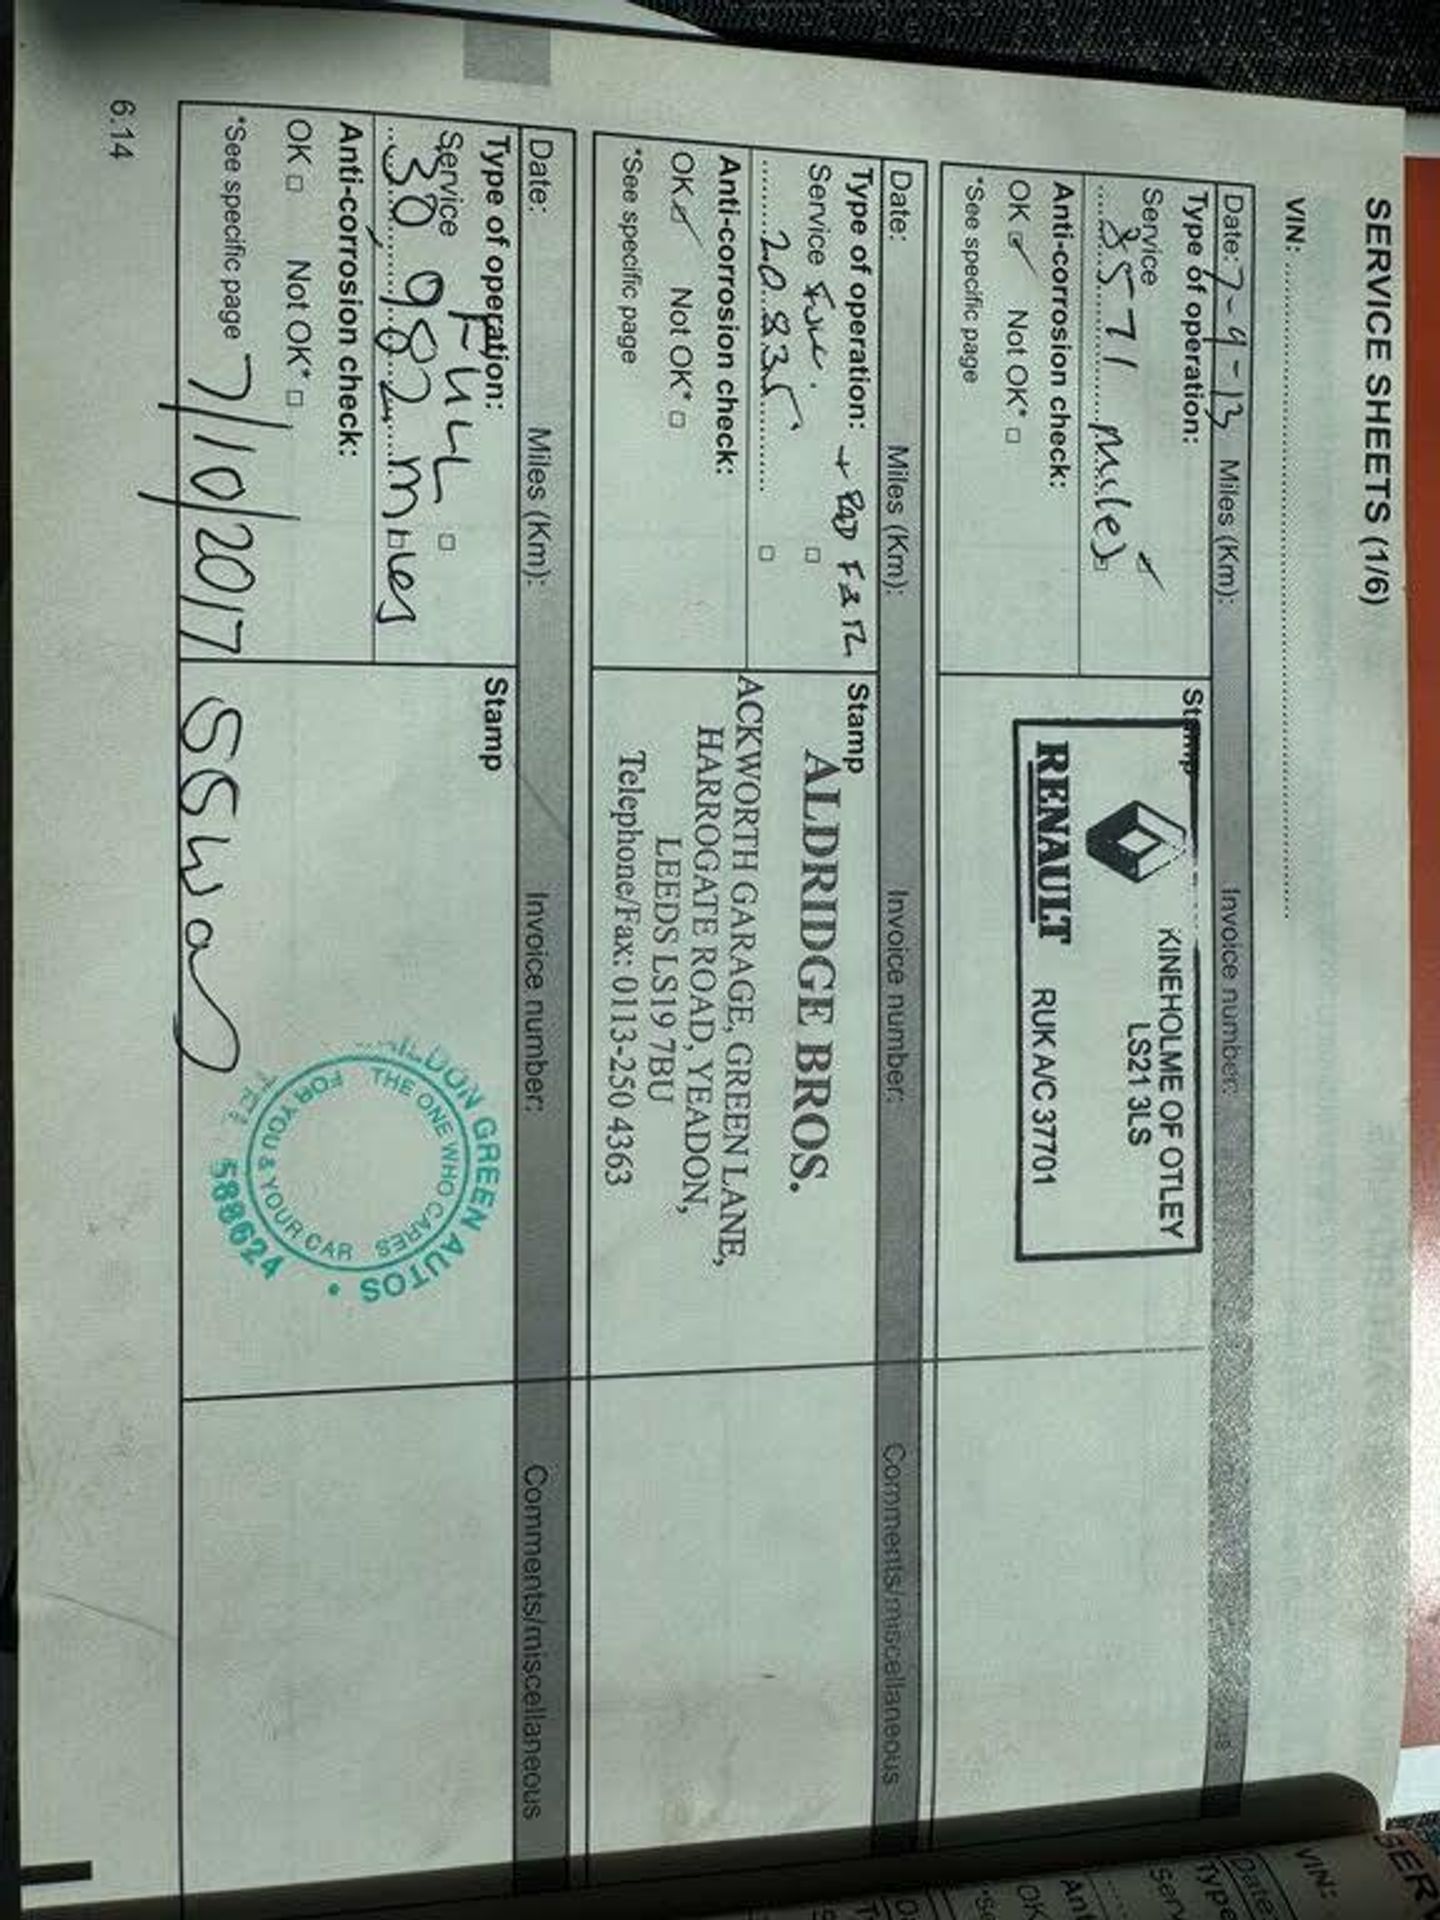 SERVICE SHEETS (1/6)
VIN:
Date: 7-9-13 Miles (Km): Invoice number:
Type of operation:
Service
8571 miles
Anti-corrosion check:
OK Not OK*
*See specific page
Stamp
KINEHOLME OF OTLEY
LS21 3LS
RENAULT RUK A/C 37701
Date: Miles (Km): Invoice number: Comments/miscellaneous
Type of operation: + PAD F&R
Service Full.
20835
Anti-corrosion check:
OK Not OK*
*See specific page
Stamp
ALDRIDGE BROS.
ACKWORTH GARAGE, GREEN LANE,
HARROGATE ROAD, YEADON,
LEEDS LS19 7BU
Telephone/Fax: 0113-250 4363
Date: Miles (Km): Invoice number: Comments/miscellaneous
Type of operation:
Service FULL
30,982 miles
Anti-corrosion check:
OK Not OK*
*See specific page 7/10/2017
Stamp
GREEN AUTOS
THE ONE WHO CARES
FOR YOU & YOUR CAR
588624
6.14
VIN:
Date
Type
Serv